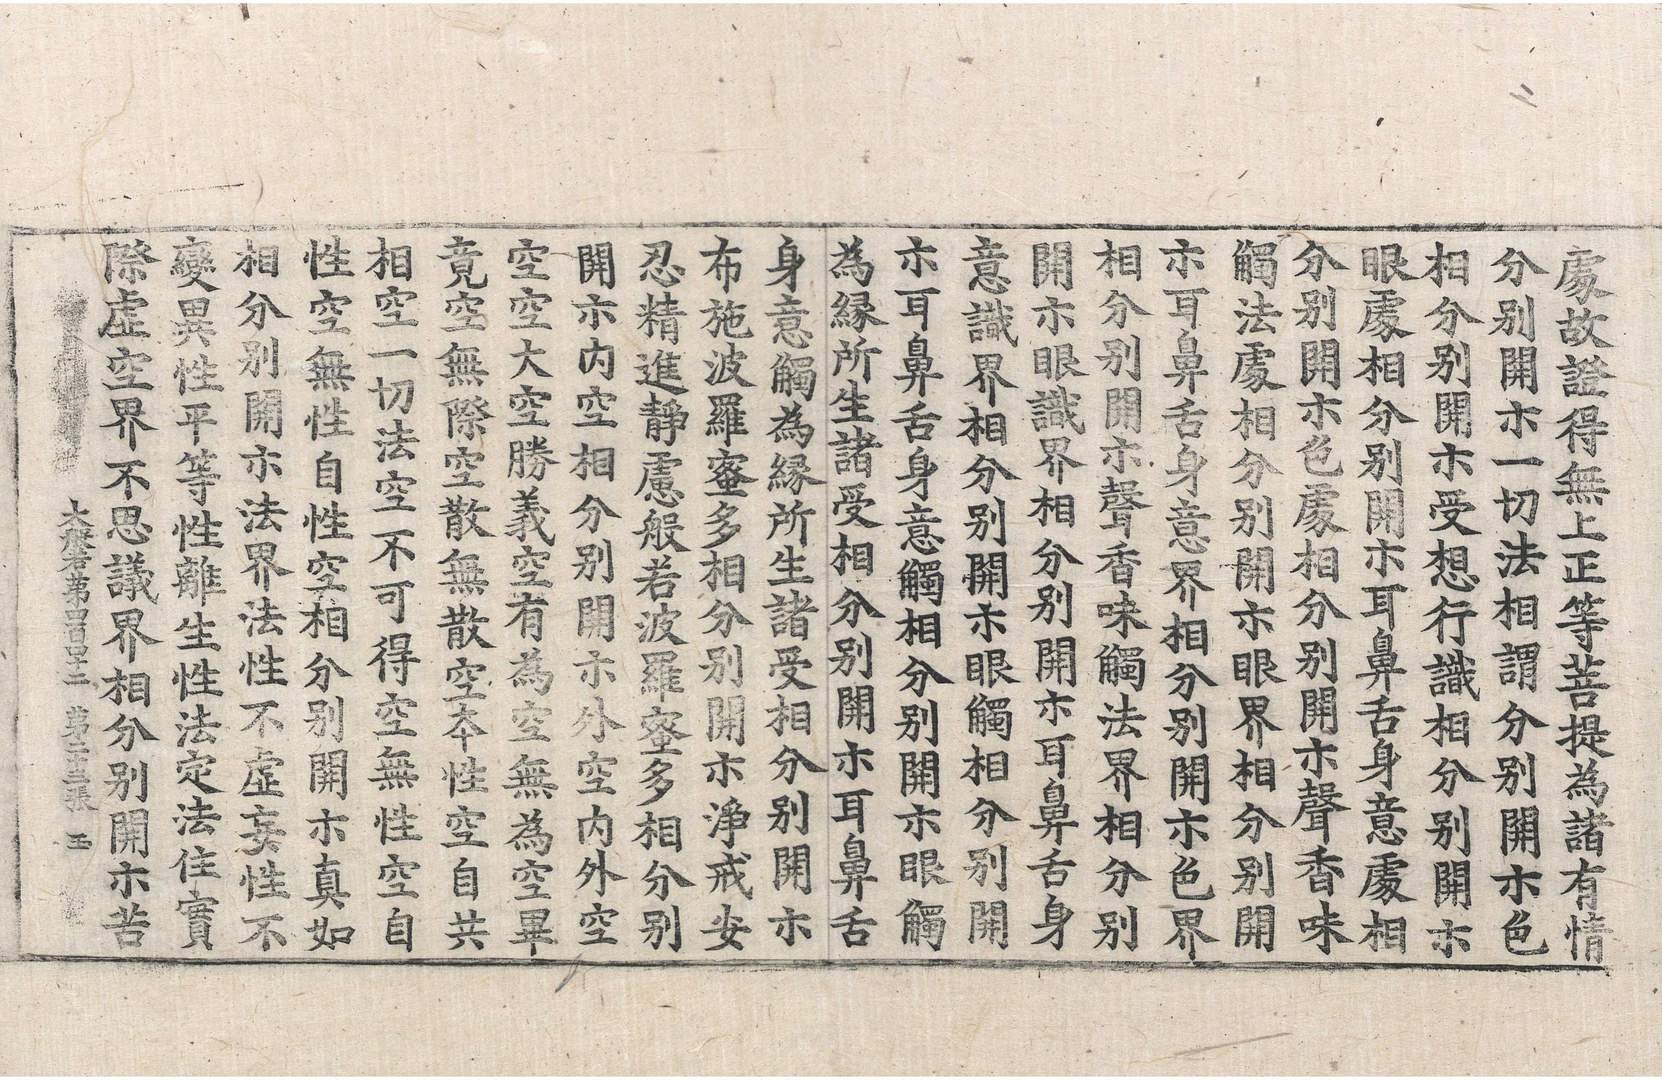 處故證得無上正等菩提為諸有情
分别開示一切法相謂分别開示色
相分别開示受想行識相分别開示
眼處相分别開示耳鼻舌身意處相
分别開示色處相分别開示聲香味
觸法處相分别開示眼界相分别開
示耳鼻舌身意界相分别開示色界
相分别開示聲香味觸法界相分别
開示眼識界相分别開示耳鼻舌身
意識界相分别開示眼觸相分别開
示耳鼻舌身意觸相分别開示眼觸
為縁所生諸受相分别開示耳鼻舌
身意觸為縁所生諸受相分别開示
布施波羅蜜多相分别開示淨戒安
忍精進靜慮般若波羅蜜多相分别
開示内空相分别開示外空内外空
空空大空勝義空有為空無為空畢
竟空無際空散無散空本性空自共
相空一切法空不可得空無性空自
性空無性自性空相分别開示真如
相分别開示法界法性不虛妄性不
變異性平等性離生性法定法住實
際虛空界不思議界相分别開示苦
大般若第四百四十二 第二十三張 玉